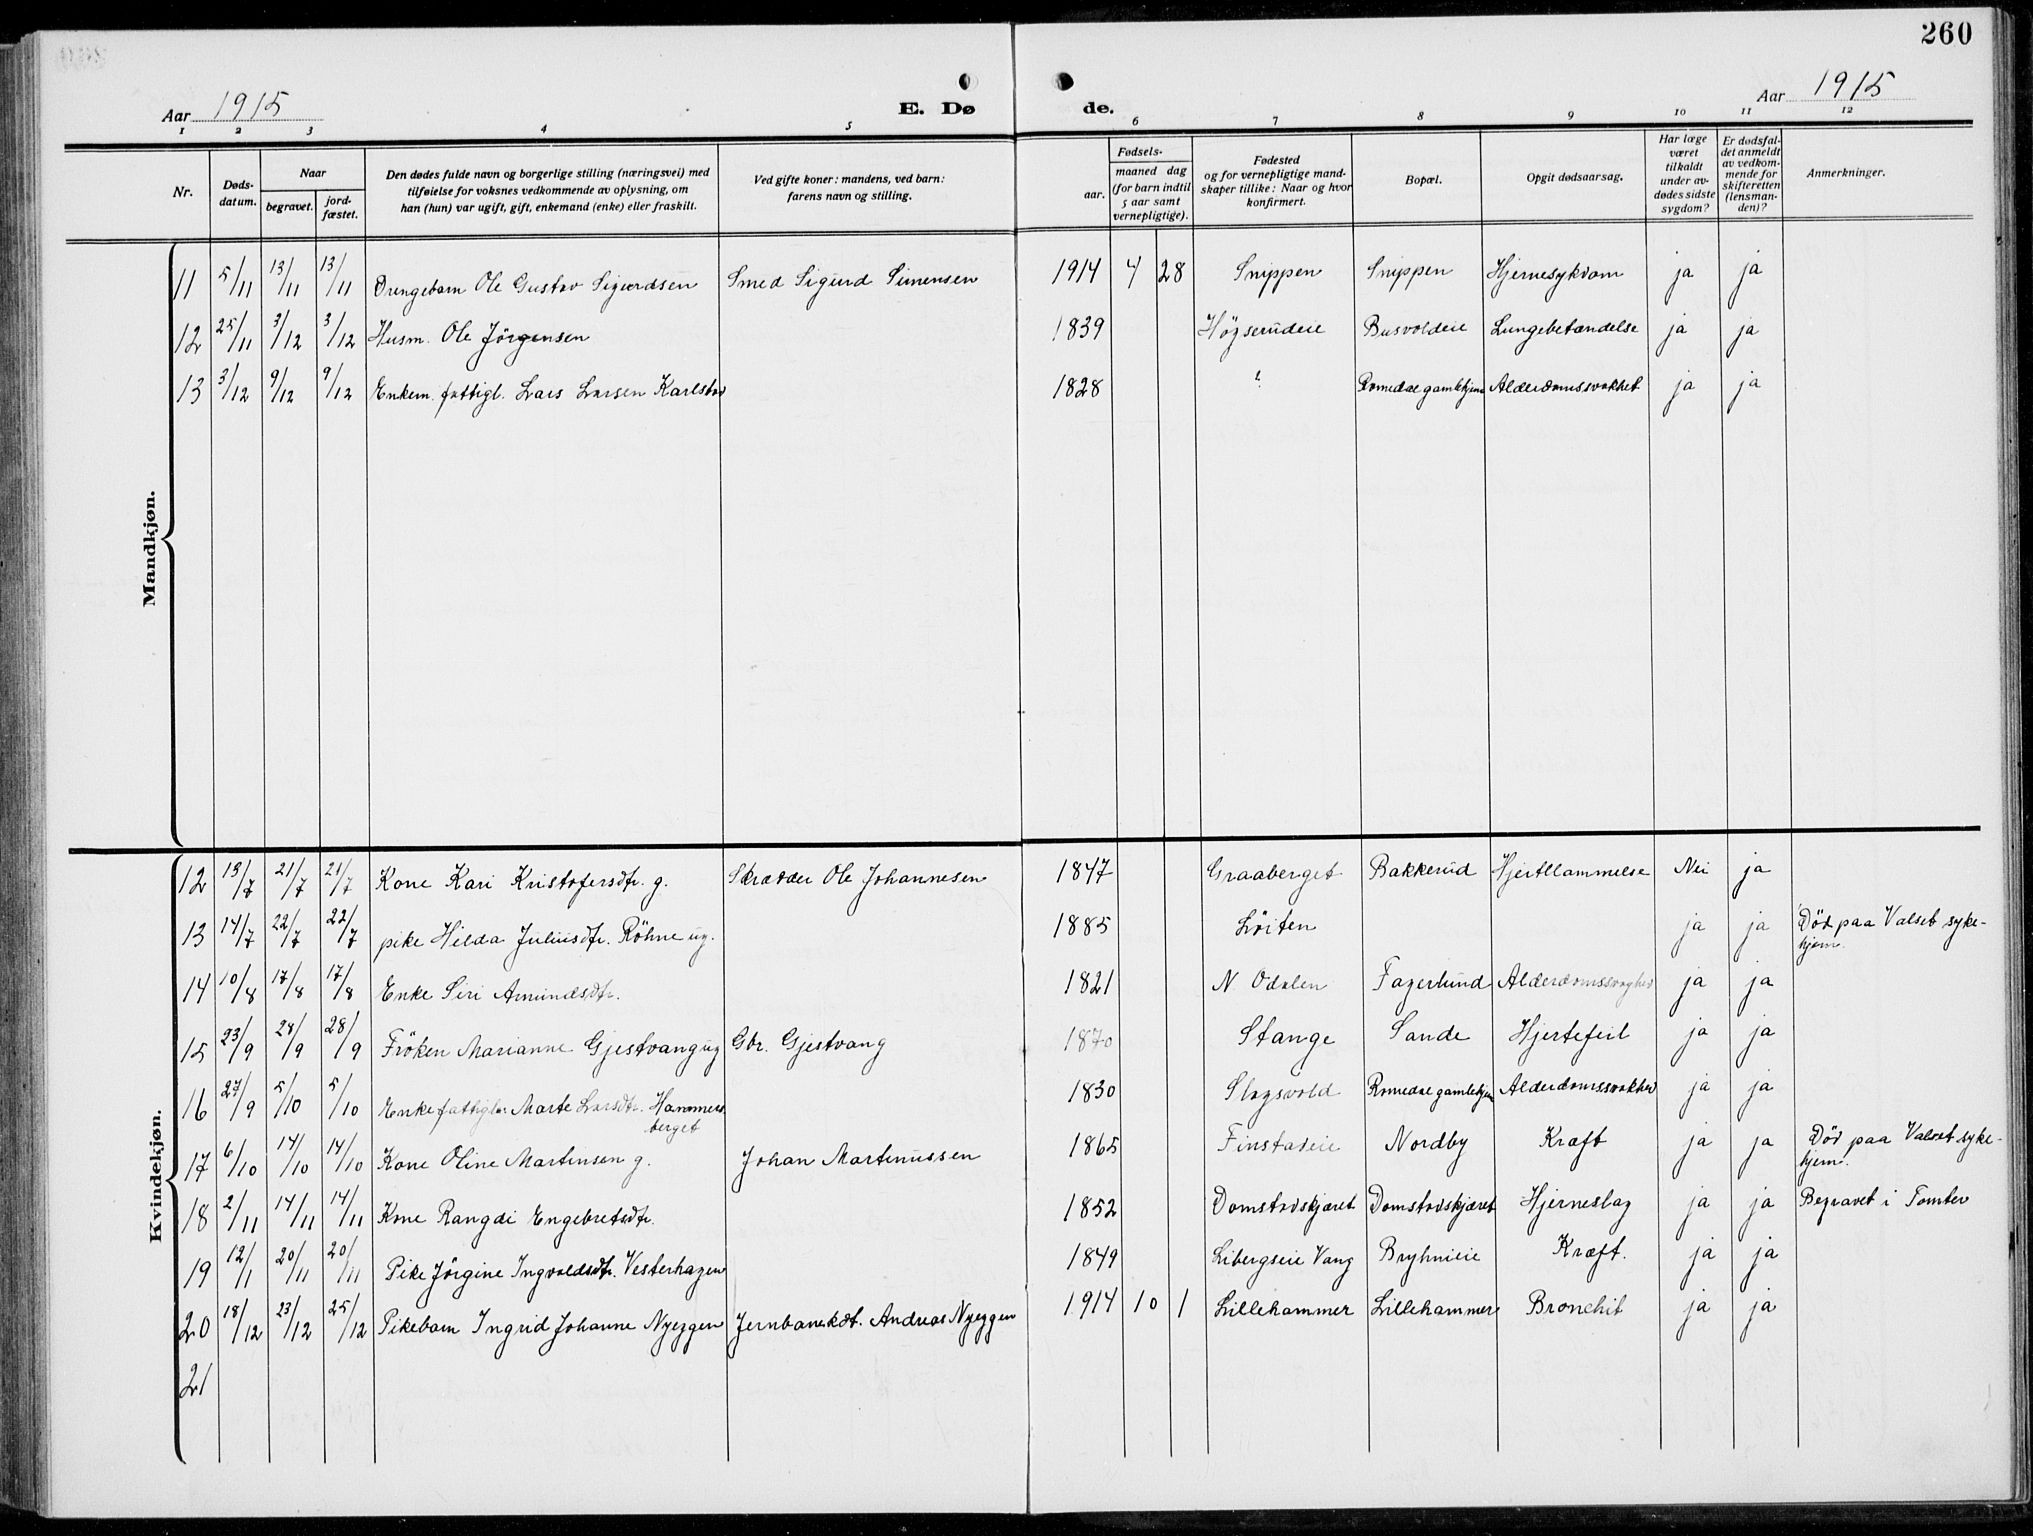 260
Aar 1915 E. Dø de. Aar 1915
1 2 3 4 5 6 7 8 9 10 11 12
Nr.
Døds-
datum.
Naar
begravet.
jord-
fæstet.
Den dødes fulde navn og borgerlige stilling (næringsvei) med
tilføielse for voksnes vedkommende av oplysning, om
han (hun) var ugift, gift, enkemand (enke) eller fraskilt.
Ved gifte koner: mandens, ved barn:
farens navn og stilling.
Fødsels-
aar.
maaned dag
(for barn indtil
5 aar samt
vernepligtige).
Fødested
og for vernepligtige mand-
skaper tillike: Naar og hvor
konfirmert.
Bopæl.
Opgit dødsaarsag.
Har læge
været
tilkaldt
under av-
dødes sidste
sygdom?
Er dødsfal-
det anmeldt
av vedkom-
mende for
skifteretten
(lensman-
den)?
Anmerkninger.
Mandkjøn.
11 5/11 13/11 13/11 Drengebarn Ole Gustav Sigurdsen Smed Sigurd Simensen 1914 4 28 Snippen Snippen Hjernesykdom ja ja
12 25/11 3/12 3/12 Husm. Ole Jörgensen 1839 Högserudeie Busvoldeie Lungebetændelse ja ja
13 3/12 9/12 9/12 Enkem. fattigl. Lars Larsen Karlstad 1828 ? Romedal gamlehjem Alderdomssvakhet ja ja
Kvindekjøn.
12 13/7 21/7 21/7 Kone Kari Kristofersdtr. g. Skrædder Ole Johannesen 1847 Graaberget Bakkerud Hjertelammelse Nei ja
13 14/7 22/7 22/7 pike Hilda Juliusdtr. Röhne ug. 1885 Löiten ja ja Död paa Valset syke-
hjem.
14 10/8 17/8 17/8 Enke Siri Amundsdtr. 1821 N. Odalen Fagerlund Alderdomssvaghed ja ja
15 23/9 28/9 28/9 Fröken Marianne Gjestvang ug Gbr. Gjestvang 1870 Stange Sande Hjertefeil ja ja
16 27/9 5/10 5/10 Enke fattigler Marte Larsdtr. Hammers
berget 1830 Slagsvold Romedal gamlehjem Alderdomssvakhed ja ja
17 6/10 14/10 14/10 Kone Oline Martinsen g. Johan Martinussen 1865 Finstadeie Nordby Kræft ja ja Död paa Valset syke-
hjem.
18 2/11 14/11 14/11 Kone Rangdi Engebretsdtr. 1852 Domstadskjæret Domstadskjæret Hjerneslag ja ja Begravet i Tomter
19 12/11 20/11 20/11 Pike Jörgine Ingvoldsdtr. Vesterhagen 1849 Libergseie Vang Bryhnieie Kræft. ja ja
20 18/12 23/12 25/12 Pikebarn Ingrid Johanne Nyeggen Jernbanekdt. Andreas Nyeggen 1914 10 1 Lillehammer Lillehammer Bronchit ja ja
21